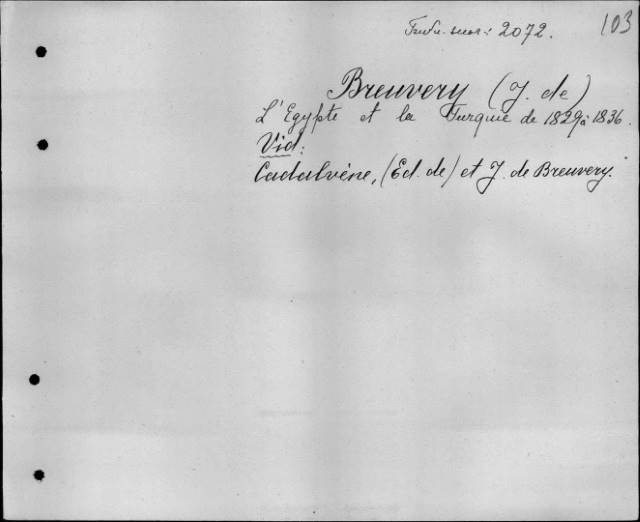 2072.
103
Breuvery (J. de)
L'Egypte et la Turquie de 1829 à 1836.
Vid:
Cadalvène, (Ed. de) et J. de Breuvery.